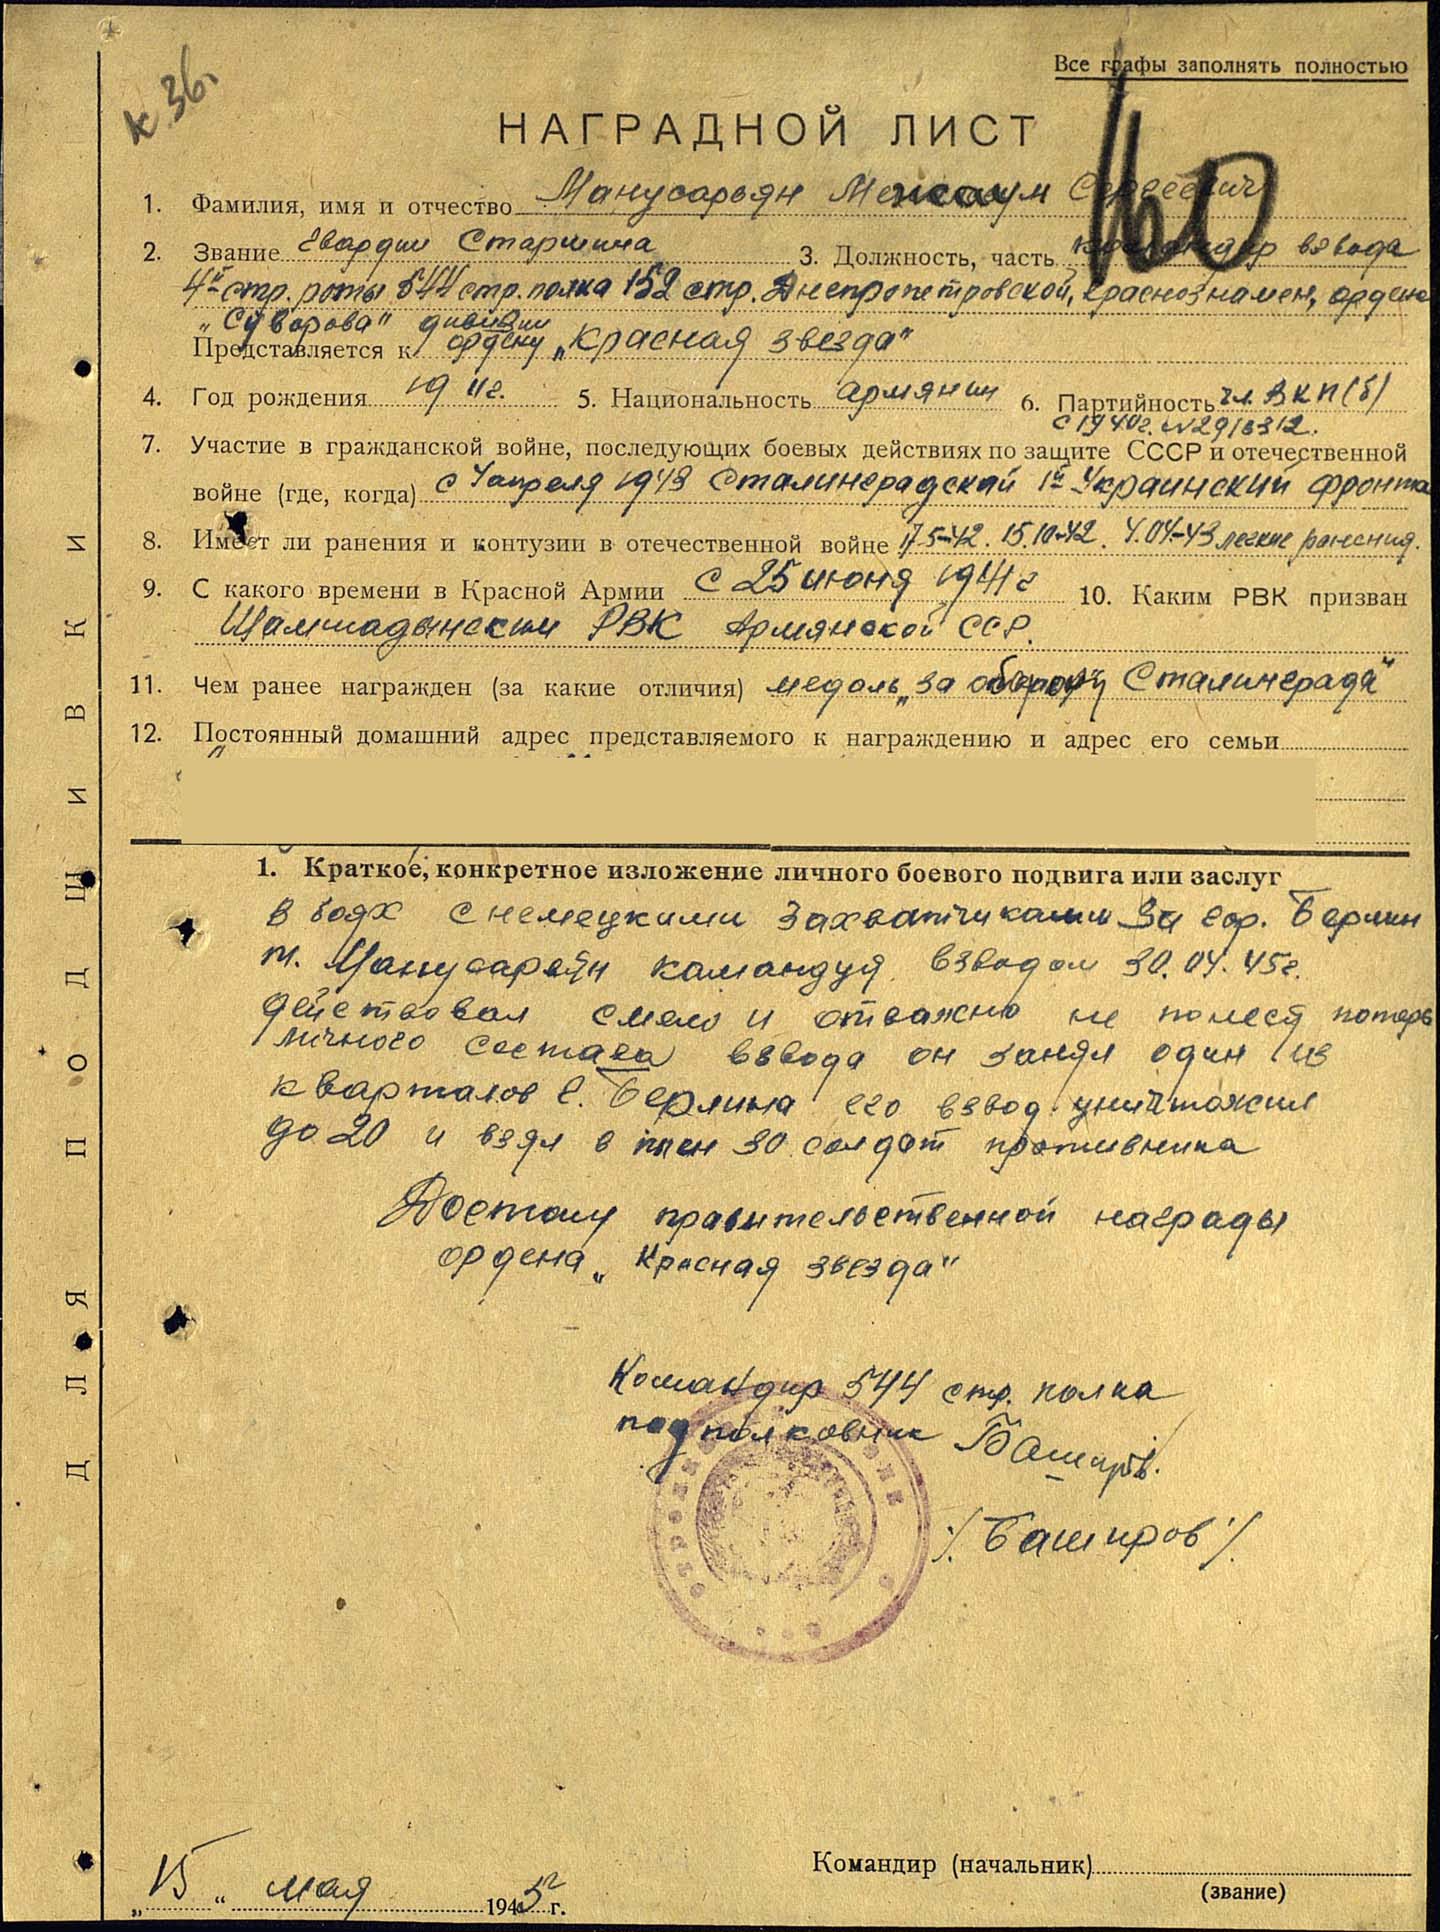 к 36.
Все графы заполнять полностью
НАГРАДНОЙ ЛИСТ
1. Фамилия, имя и отчество Манусарьян Сергеевич
2. Звание Гвардии Старшина 3. Должность, часть командир взвода
4й стр. роты 544 стр. полка 152 стр. Днепропетровской, Краснознамен, ордена
„Суворова" дивизии
Представляется к ордену „Красная звезда"
4. Год рождения 1911г. 5. Национальность армянин 6. Партийность чл. ВКП(б)
с 1940г. №
7. Участие в гражданской войне, последующих боевых действиях по защите СССР и отечественной
войне (где, когда) с 4 апреля 1943 Сталинградский 1й Украинский фронта
8. Имеет ли ранения и контузии в отечественной войне 17-5-42. 15.10-42. 4.04-43 легкие ранения.
9. С какого времени в Красной Армии с 25 июня 1941г 10. Каким РВК призван
Шамшадинским РВК Армянской ССР.
11. Чем ранее награжден (за какие отличия) медаль „за оборону Сталинграда"
12. Постоянный домашний адрес представляемого к награждению и адрес его семьи
1. Краткое, конкретное изложение личного боевого подвига или заслуг
В боях с немецкими захватчиками за гор. Берлин
т. Манусарьян командуя взводом 30.04.45г.
действовал смело и отважно не понеся потерь
личного состава взвода он занял один из
кварталов г. Берлина его взвод уничтожил
до 20 и взял в плен 30 солдат противника
Достоин правительственной награды
ордена „Красная звезда"
Командир 544 стр. полка
подполковник Баширов.
/Баширов/.
Командир (начальник)
(звание)
„15" мая 1945 г.
ДЛЯ ПОДШИВКИ